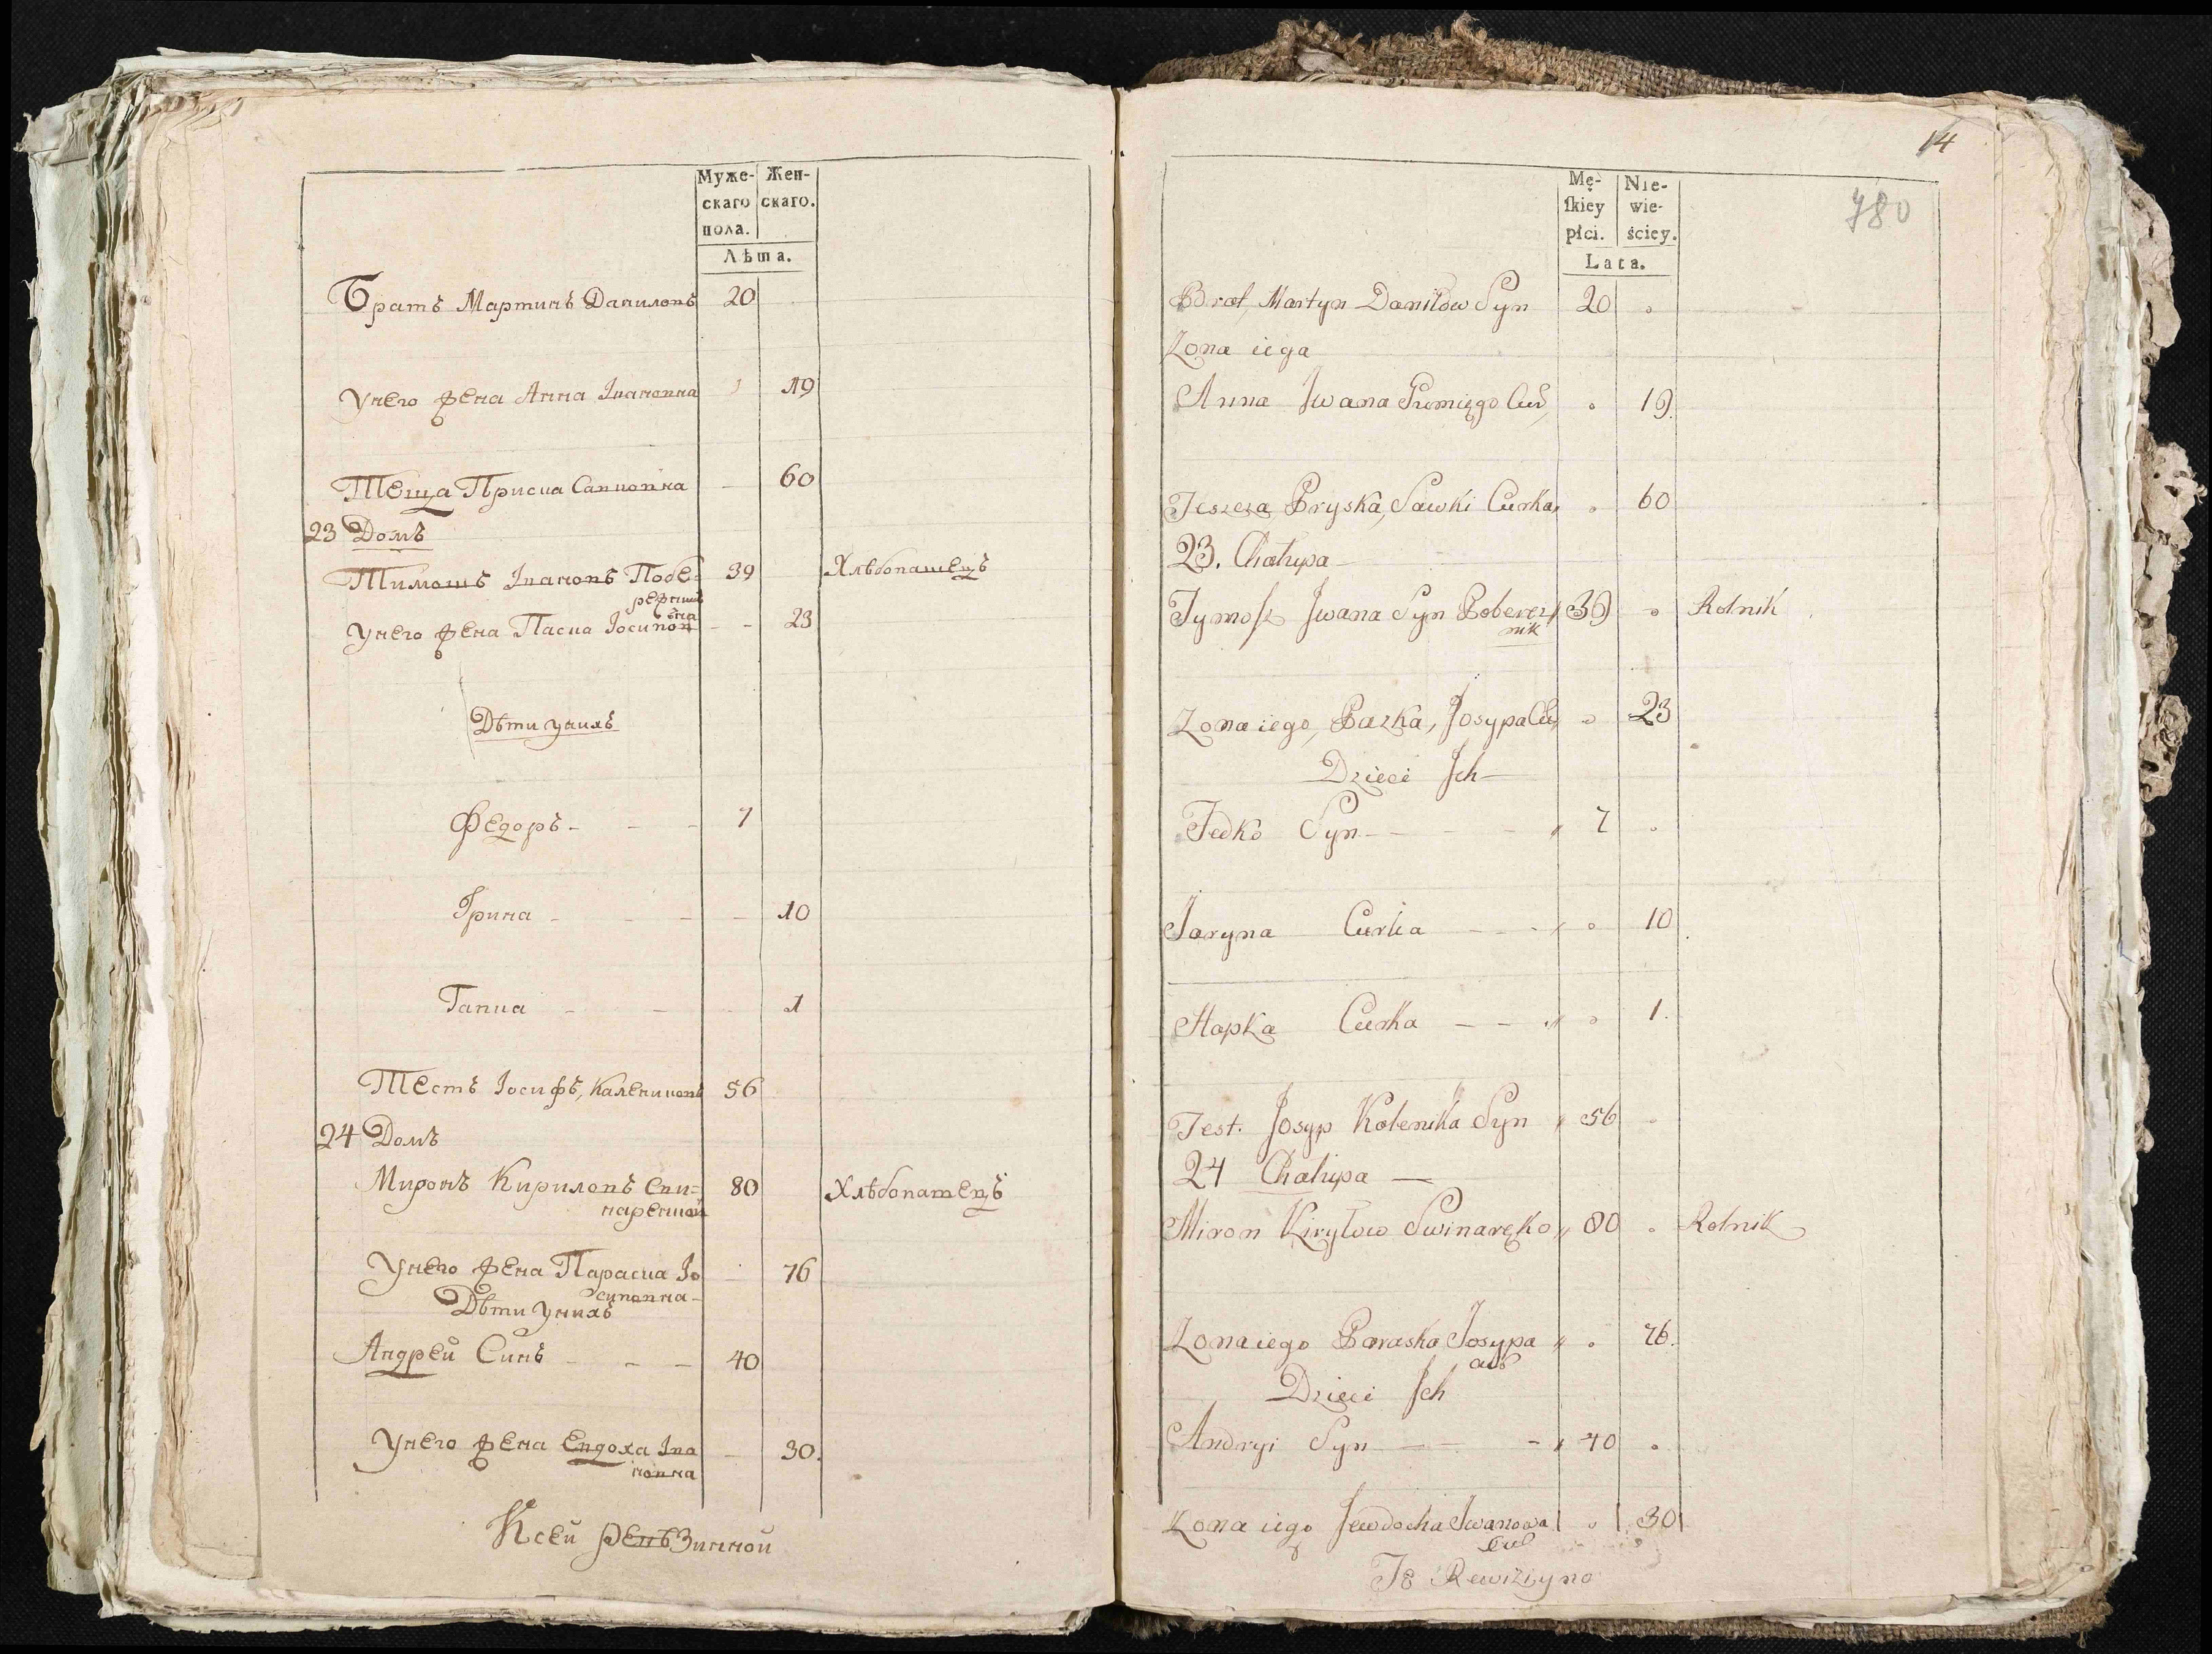 Муже-
скаго
пола.
Жен-
скаго.
Лѣта.
Братъ Мартинъ Даниловъ 20
Унего жена Анна Ивановна 19
Теща Приска Савковна 60
23 Домъ
Тимошъ Ивановъ Побе= 39 Хлѣбопашецъ
режникъ
Унего жена Паска Іосипов 23
ъна
Дѣти унихъ
Федоръ - - - 7
Ірина - - - - 10
Гапка - - - 1
Тесть Іосифъ, Калениковъ 56
24 Домъ
Миронъ Кириловъ Сви= 80 Хлѣбопашецъ
наренкой
Унего жена Параска Іо 76
сиповна -
Дѣти Унихъ
Андрей Синъ - - - 40
Унего жена Евдоха Ива 30.
новна
Ксей ревѣзинной
14
780
Mę-
ſkiey
płci.
Nie-
wie-
ściey.
Lata.
Brat, Martyn Daniłow Syn 20
Zona iega
Anna Iwana 19.
Teszcza Pryska, Sawki Curka, 60
23. Chałupa
Tymosz Iwana Syn Poberez 39 Rolnik
nik
Zona iego, Pazka, Josypa Cu, 23
Dzieci Ich
Fedko Syn - - - - 7
Jaryna Curka - - - 10
Hapka Curka - - 1.
Test. Josyp Kolenika Syn 56
24 Chałupa
Miron Kiryłow Swinaręko, 80 Rolnik
Zona iego Paraska Josypa 76.
cur
Dzieci Ich
Andryi Syn - - 40
Zona iego Jewdocha Iwanowa 30
cur
Te Rewizyyno